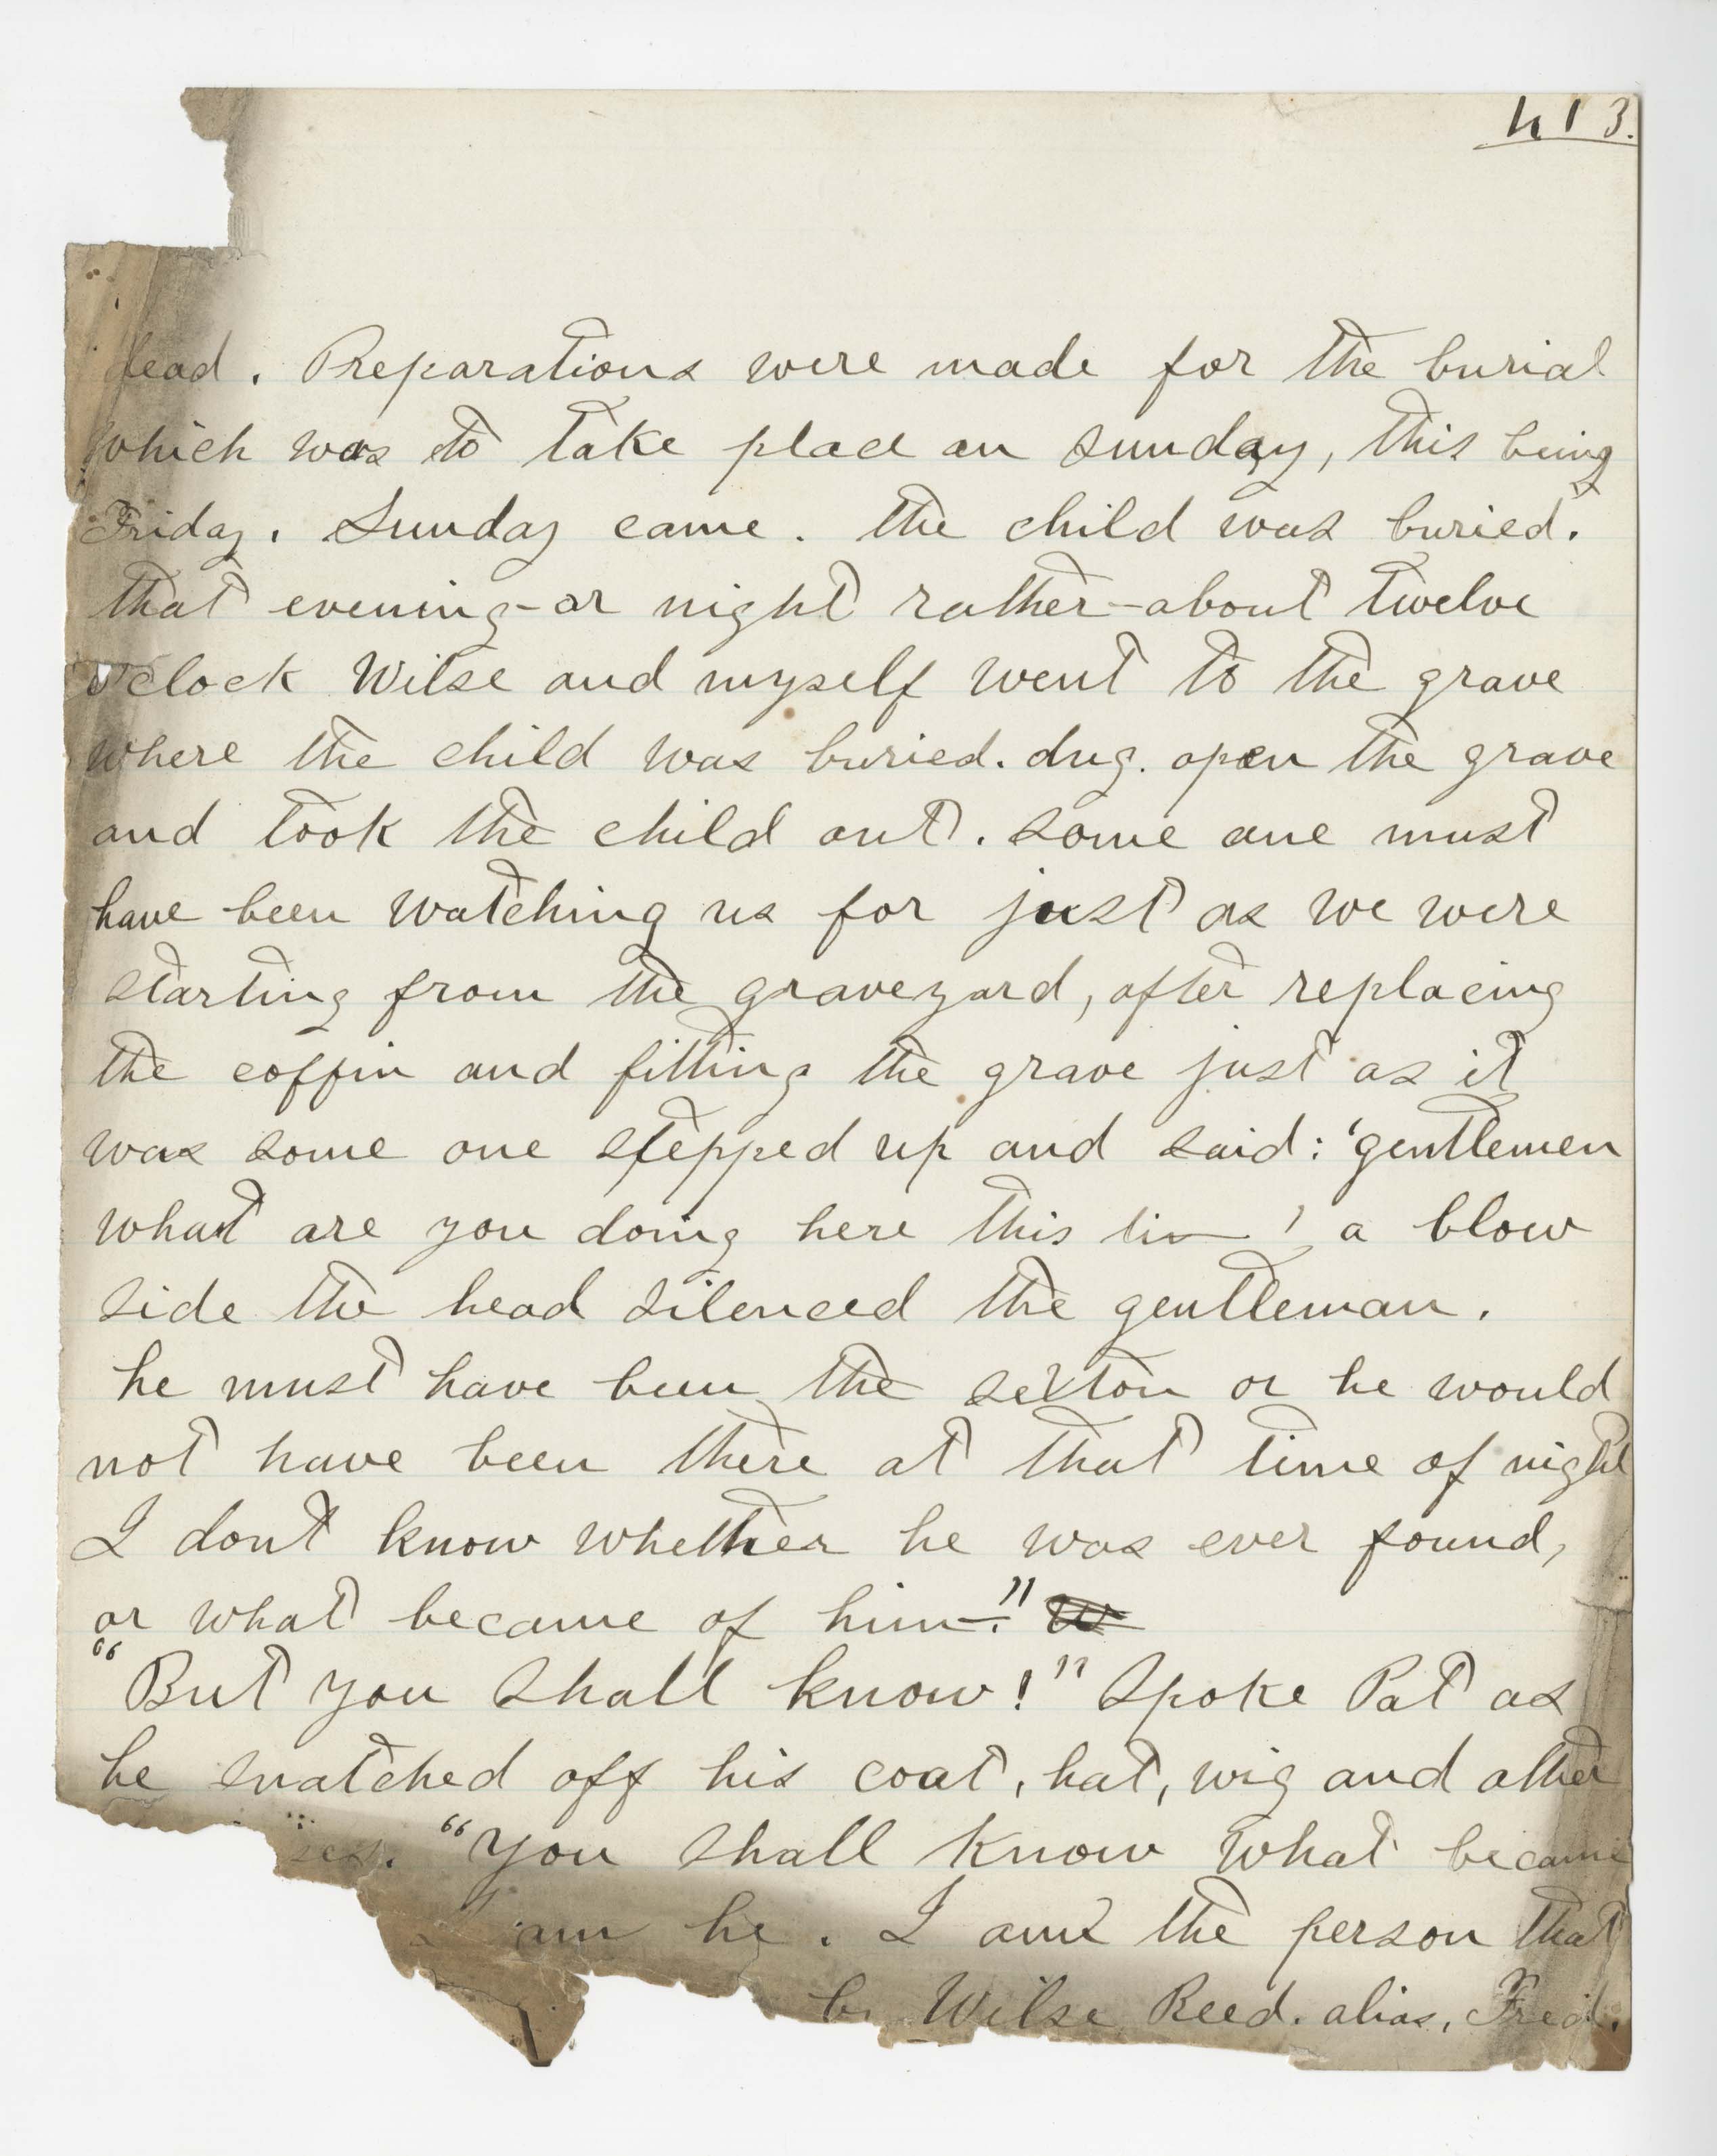 413.
dead. Preparations were made for the burial
which was to take place on sunday, this being
Friday. Sunday came. the child was buried.
that evening-or night rather-about twelve
o'clock Wilse and myself went to the grave
where the child was buried. dug. open the grave
and took the child out. some one must
have been watching us for just as we were
starting from the graveyard, after replacing
the coffin and filling the grave just as it
was some one stepped up and said: 'gentlemen
what are you doing here this tim—' a blow
side the head silenced the gentleman.
he must have been the sexton or he would
not have been there at that time of night
I dont know whether he was ever found,
or what became of him—."
"But you shall know!" spoke Pat as
he snatched off his coat, hat, wig and other
"You shall know what became
am he. I am the person that
Wilse Reed. alias, Fred.